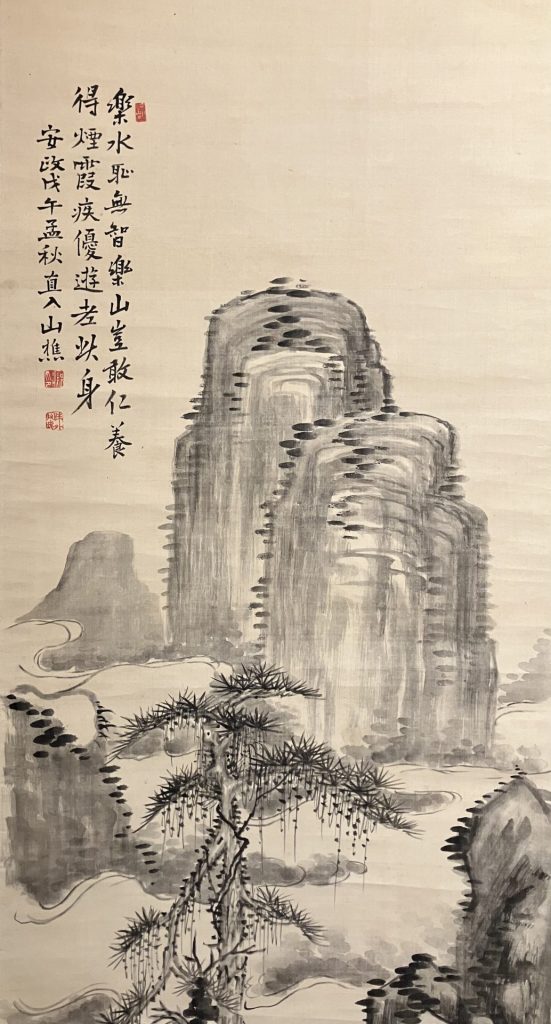 樂水恥無智樂山豈敢仁養
得煙霞疾優遊老此身
安政戊午孟秋直入山樵